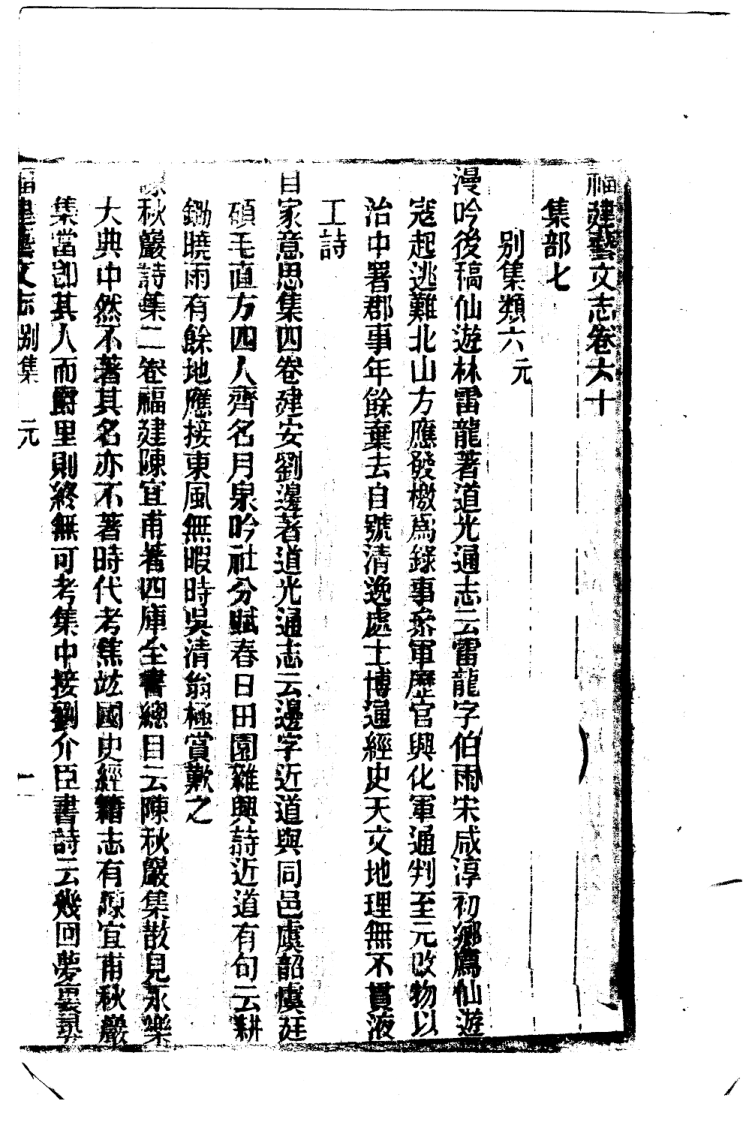 福建藝文志卷六十
集部七
別集類六元
漫吟後稿仙遊林雷龍著道光通志云雷龍字伯雨宋咸淳初鄉薦仙遊
寇起逃難北山方應發檄爲錄事叅軍歷官興化軍通判至元改物以
治中署郡事年餘棄去自號清逸處士博通經史天文地理無不貫液
工詩
自家意思集四卷建安劉邊著道光通志云邊字近道與同邑虞韶虞廷
碩毛直方四人齊名月泉吟社分賦春日田園雜興詩近道有句云耕
鋤曉雨有餘地應接東風無暇時吳清翁極賞歎之
陳秋巖詩集二卷福建陳宜甫著四庫全書總目云陳秋巖集散見永樂
大典中然不著其名亦不著時代考焦竑國史經籍志有陳宜甫秋巖
集當卽其人而爵里則終無可考集中接劉介臣書詩云幾回夢裏尋
福建藝文志 別集 元 一